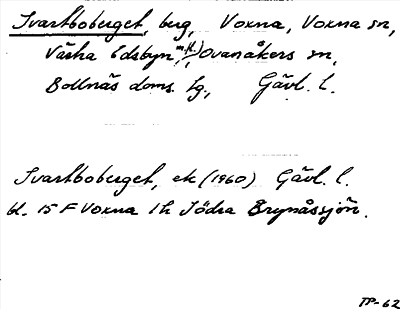 Svartboberget, berg, Voxna, Voxna sn,
Västra Edsbyn m.fl.), Ovanåkers sn,
Bollnäs doms. lg, Gävl. l.
Svartboberget, ek (1960) Gävl. l.
bl. 15 F Voxna 1 h Södra Brynåssjön.
TP-62